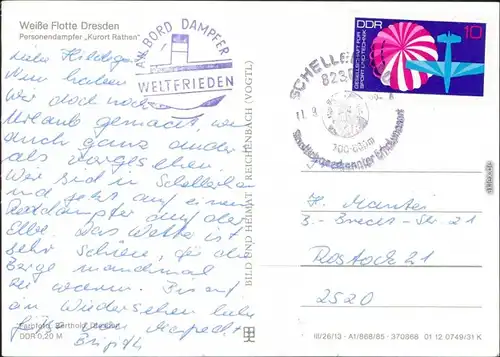 Weiße Flotte Dresden
Personendampfer „Kurort Rathen"
AN BORD DAMPFER
WELTFRIEDEN
DDR 10
GESELLSCHAFT FÜR
SPORT UND TECHNIK
SCHELLER
823
11. 9.
700-800m
Liebe
Nun haben
wir doch noch
Urlaub gemacht, wenn
auch ganz anders
als vorgesehen
Wir sind in Schellerhau
und jetzt auf einem
Raddampfer auf der
Elbe. Das Wetter ist
sehr schön, für die
Berge manchmal
zu warm. Bis auf
ein Wiedersehen liebe
Grüße
Brigitte
Farbfoto: Berthold
DDR 0,20 M
BILD UND HEIMAT REICHENBACH (VOGTL)
H.
B.-Brecht-Str. 21
Rostock 21
2520
III/26/13 · A1/868/85 · 370866 01 12 0749/31 K